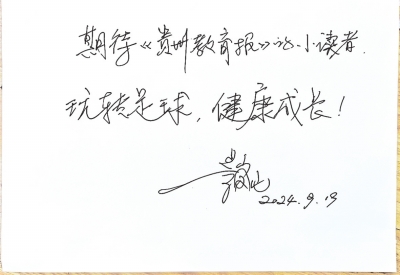 期待《贵州教育报》的小读者
玩转足球，健康成长！
2024.9.19